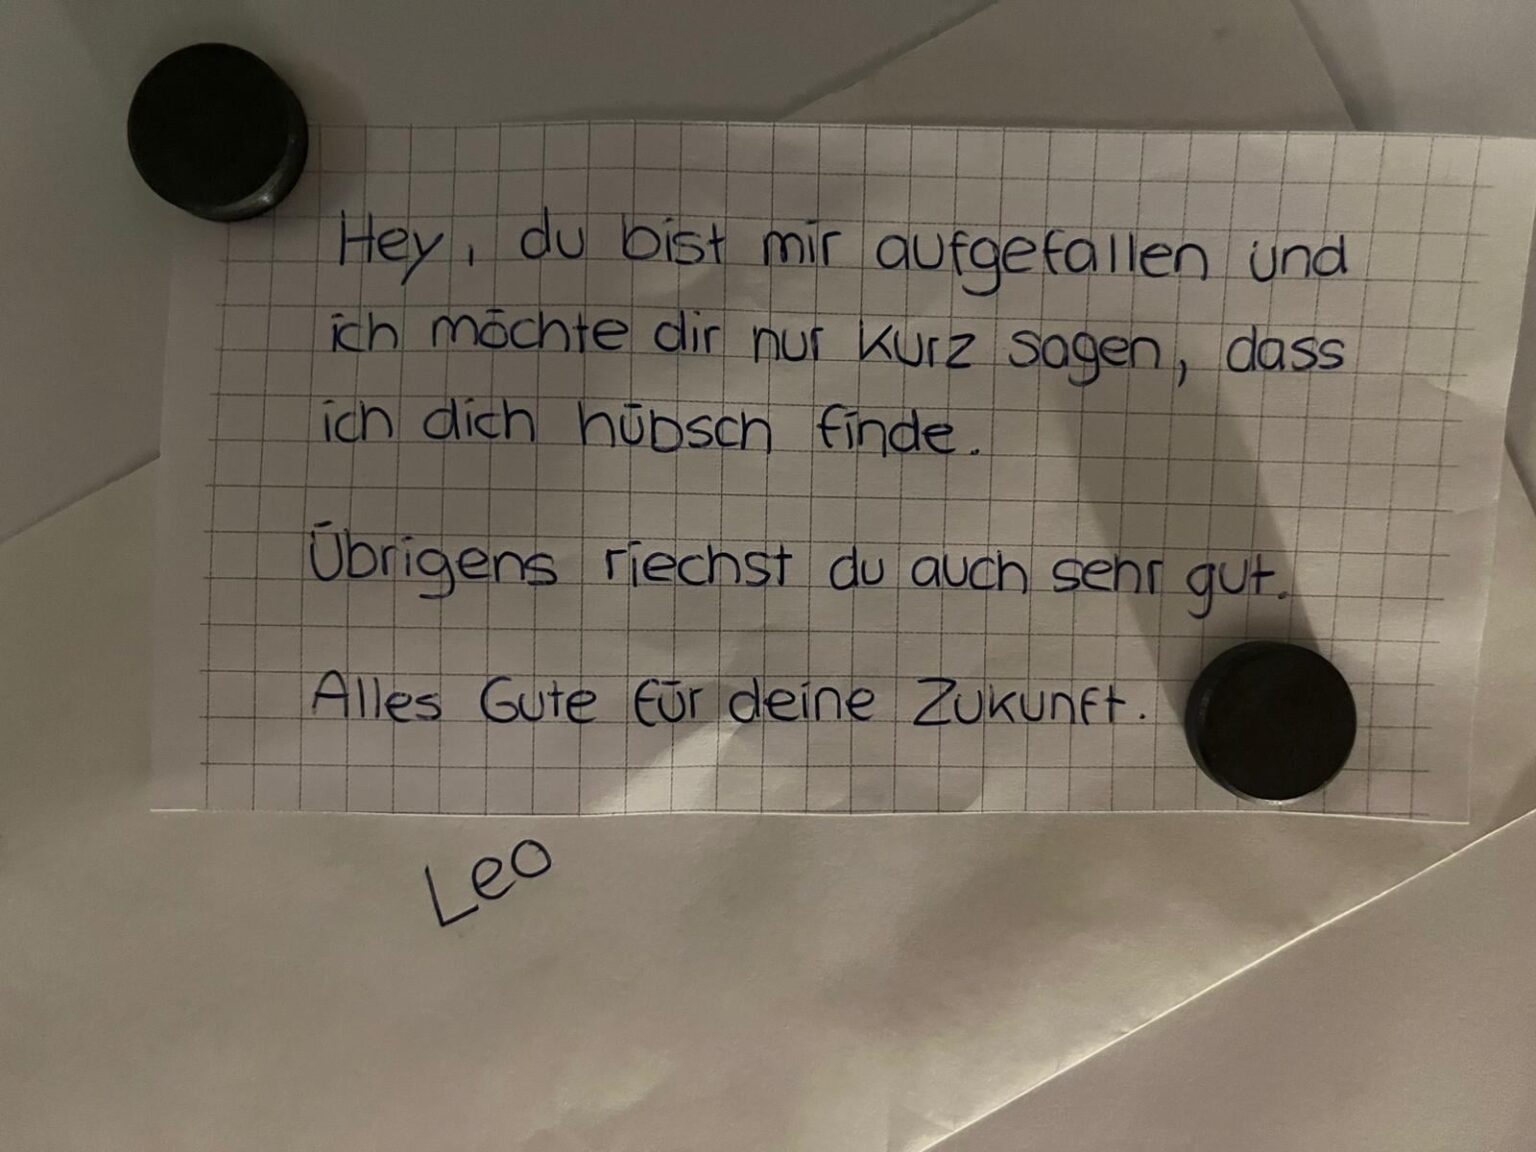 Hey, du bist mir aufgefallen und
ich möchte dir nur kurz sagen, dass
ich dich hübsch finde.
Übrigens riechst du auch sehr gut.
Alles Gute für deine Zukunft.
Leo